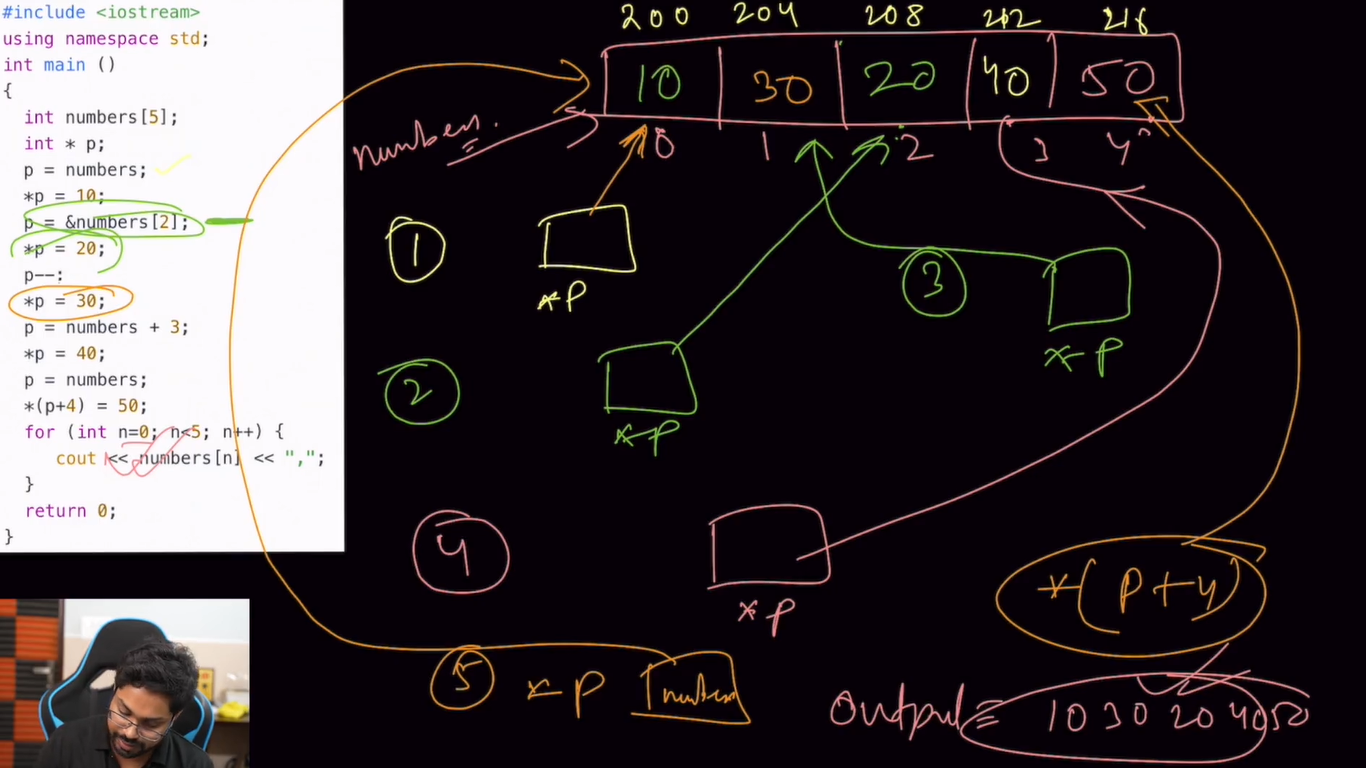 #include <iostream>
using namespace std;
int main ()
{
int numbers[5];
int * p;
p = numbers;
*p = 10;
p = &numbers[2];
*p = 20;
p--;
*p = 30;
p = numbers + 3;
*p = 40;
p = numbers;
*(p+4) = 50;
for (int n=0; n<5; n++) {
cout << numbers[n] << ",";
}
return 0;
}
200 204 208 212 216
10 30 20 40 50
numbers.
0 1 2 3 4
1
*p
3
*p
2
*p
4
*p
*(p+4)
5 *p numbers
Output = 10 30 20 40 50